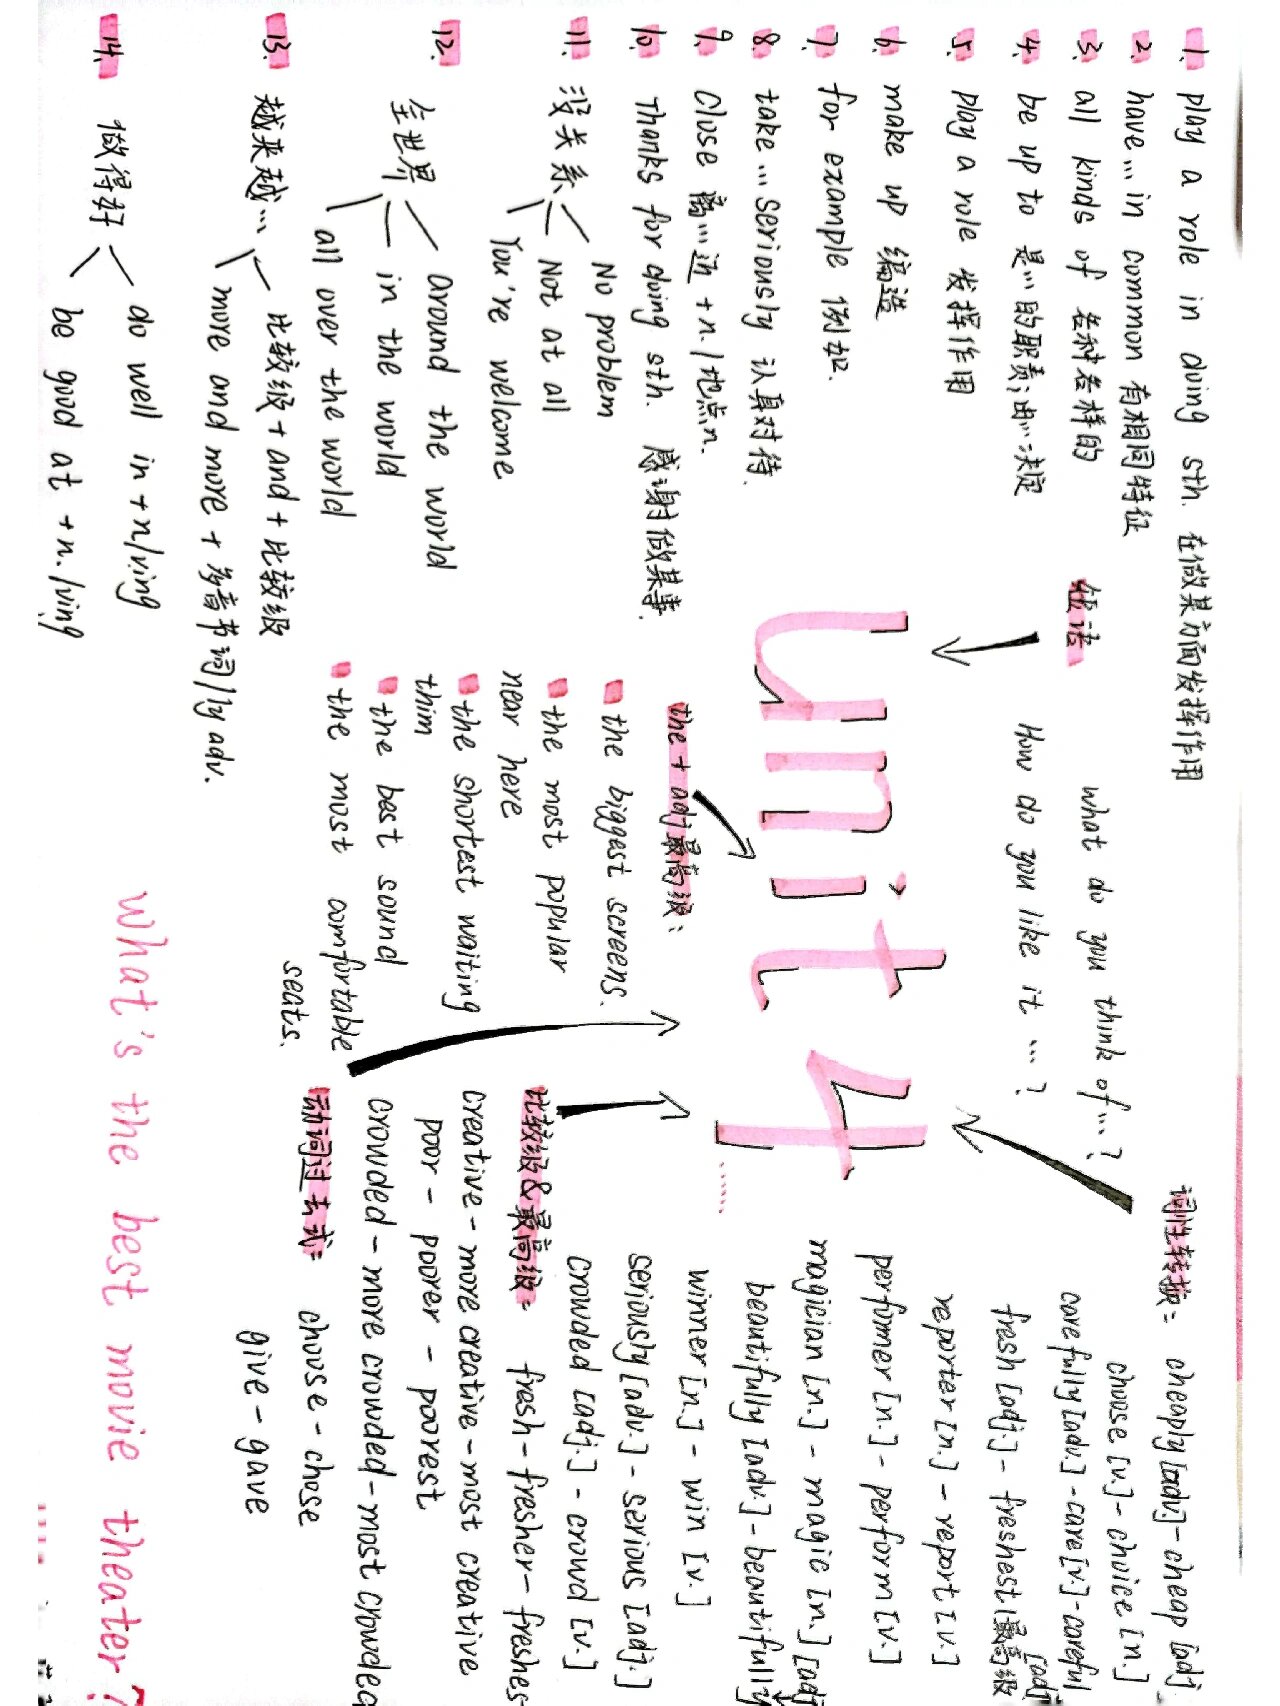 1. play a role in doing sth. 在做某方面发挥作用
2. have...in common 有相同特征
3. all kinds of 各种各样的
4. be up to 是…的职责;由…决定
5. play a role 发挥作用
6. make up 编造
7. for example 例如.
8. take...seriously 认真对待.
9. Close 离…近 +n./地点n.
10. Thanks for doing sth. 感谢做某事.
11. 没关系
No problem
Not at all
You're welcome
12. 全世界
around the world
in the world
all over the world
13. 越来越…
比较级 + and + 比较级
more and more + 多音节词/ly adv.
14. 做得好
do well in +n/ving
be good at +n./ving
what do you think of...?
How do you like it ...?
unit 4
the + adj最高级:
the biggest screens.
the most popular
near here
the shortest waiting
thim
the best sound
the most comfortable
seats.
词性转换: cheaply[adv.]-cheap [adj.
choose [v.] - choice [n.]
carefully[adv.] - care[v.]-careful
[adj
fresh [adj.] - freshest(最高级
reporter[n.] - report[v.]
performer[n.] - perform[v.]
magician [n.] - magic [n.] [adj
beautifully [adv.] - beautifully
winner [n.] - win [v.]
seriously [adv.] - serious [adj.]
crowded [adj.] - crowd [v.]
比较级&最高级: fresh-fresher-freshes
creative-more creative-most creative
poor - poorer - poorest
crowded - more crowded - most crowded
动词过去式: choose - chose
give - gave
what's the best movie theater?